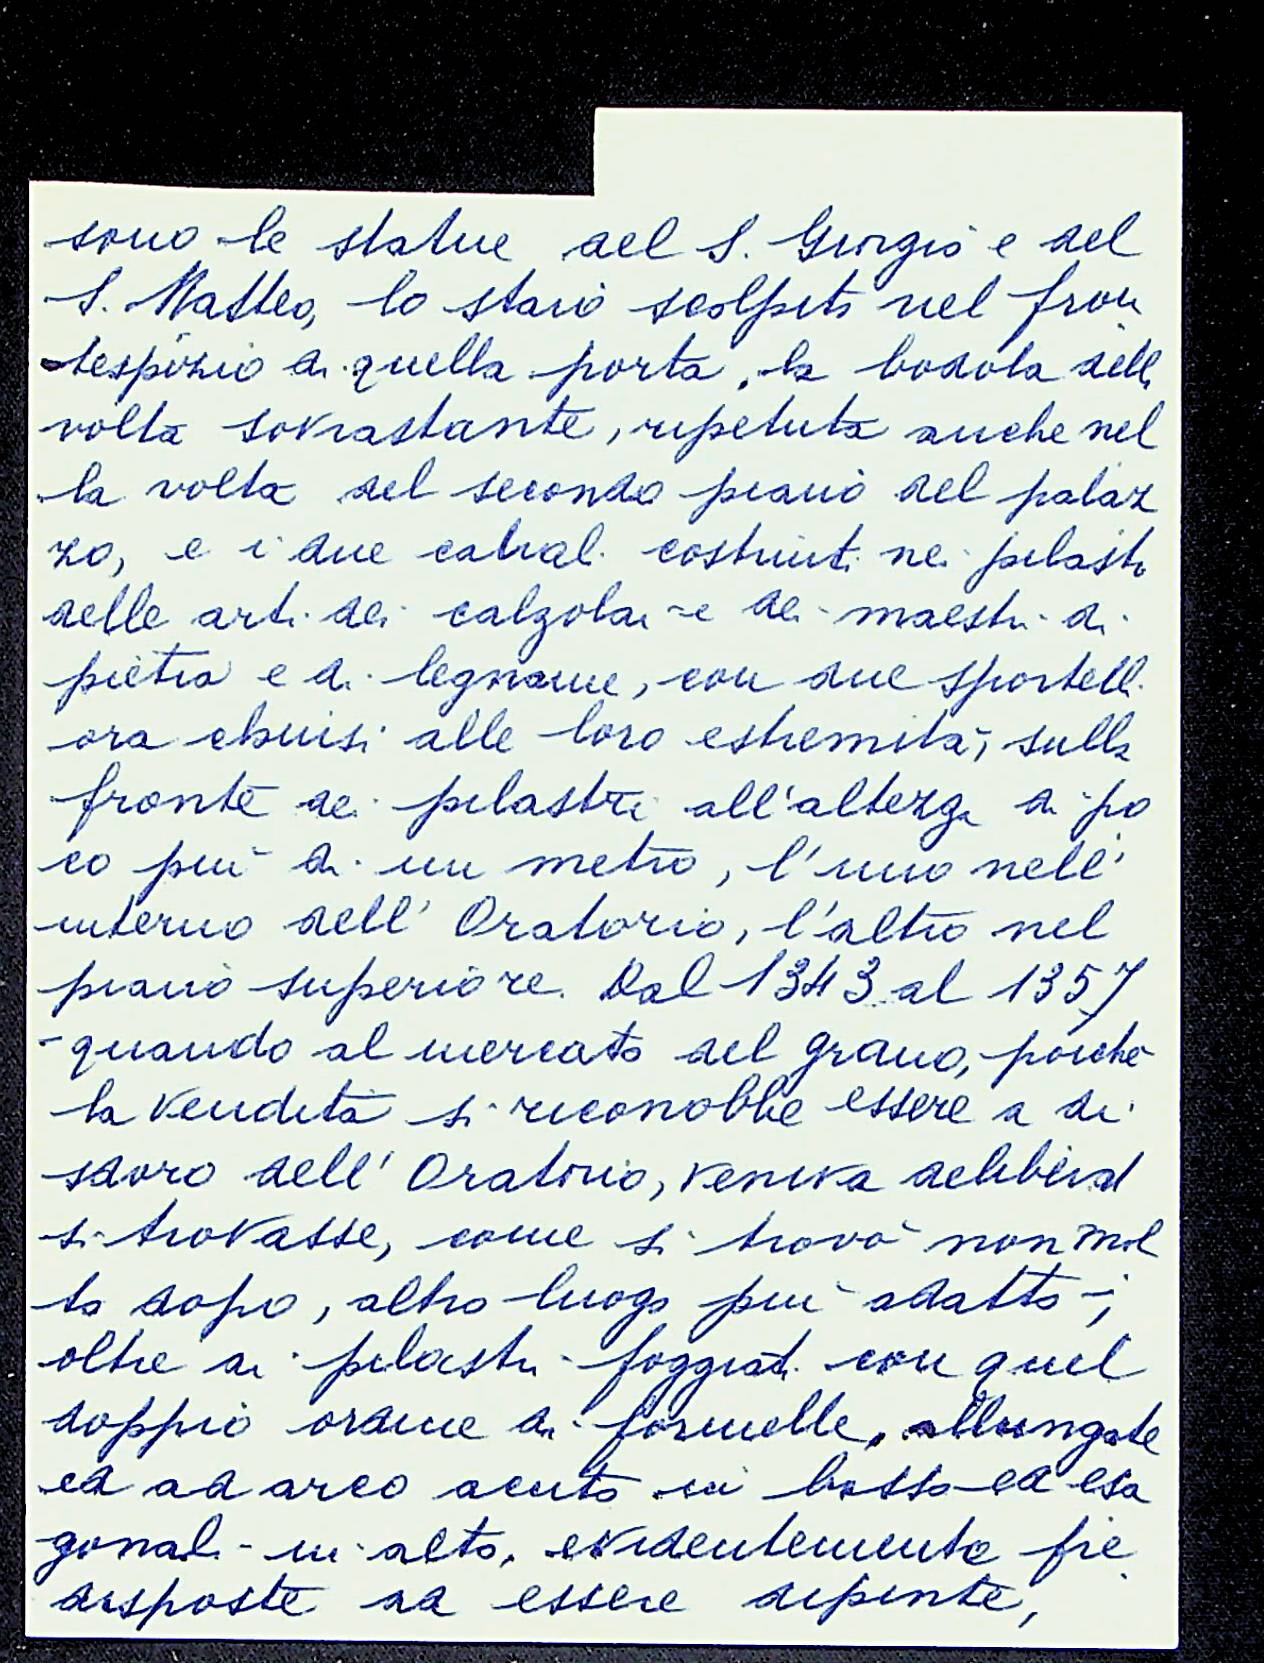 sono le statue del S. Giorgio e del
S. Matteo, lo staio scolpito nel fron
tespizio di quella porta, la bodola della
volta sovrastante, ripetuta anche nel
la volta del secondo piano del palaz
zo, e i due canali costruiti nei pilastri
delle arti dei calzolai e dei maestri di
pietra e di legname, con due sportelli
ora chiusi alle loro estremità, sulla
fronte dei pilastri all'altezza di po
co più di un metro, l'uno nell'
interno dell'Oratorio, l'altro nel
piano superiore. Dal 1343 al 1357
- quando al mercato del grano, poiché
la vendita si riconobbe essere a di
sdoro dell'Oratorio, veniva deliberato
si trovasse, come si trovò non mol
to dopo, altro luogo più adatto -;
oltre ai pilastri foggiati con quel
doppio ordine di formelle, allungate
ed ad arco acuto in basso ed esa
gonali in alto, evidentemente pre
disposte ad essere dipinte,